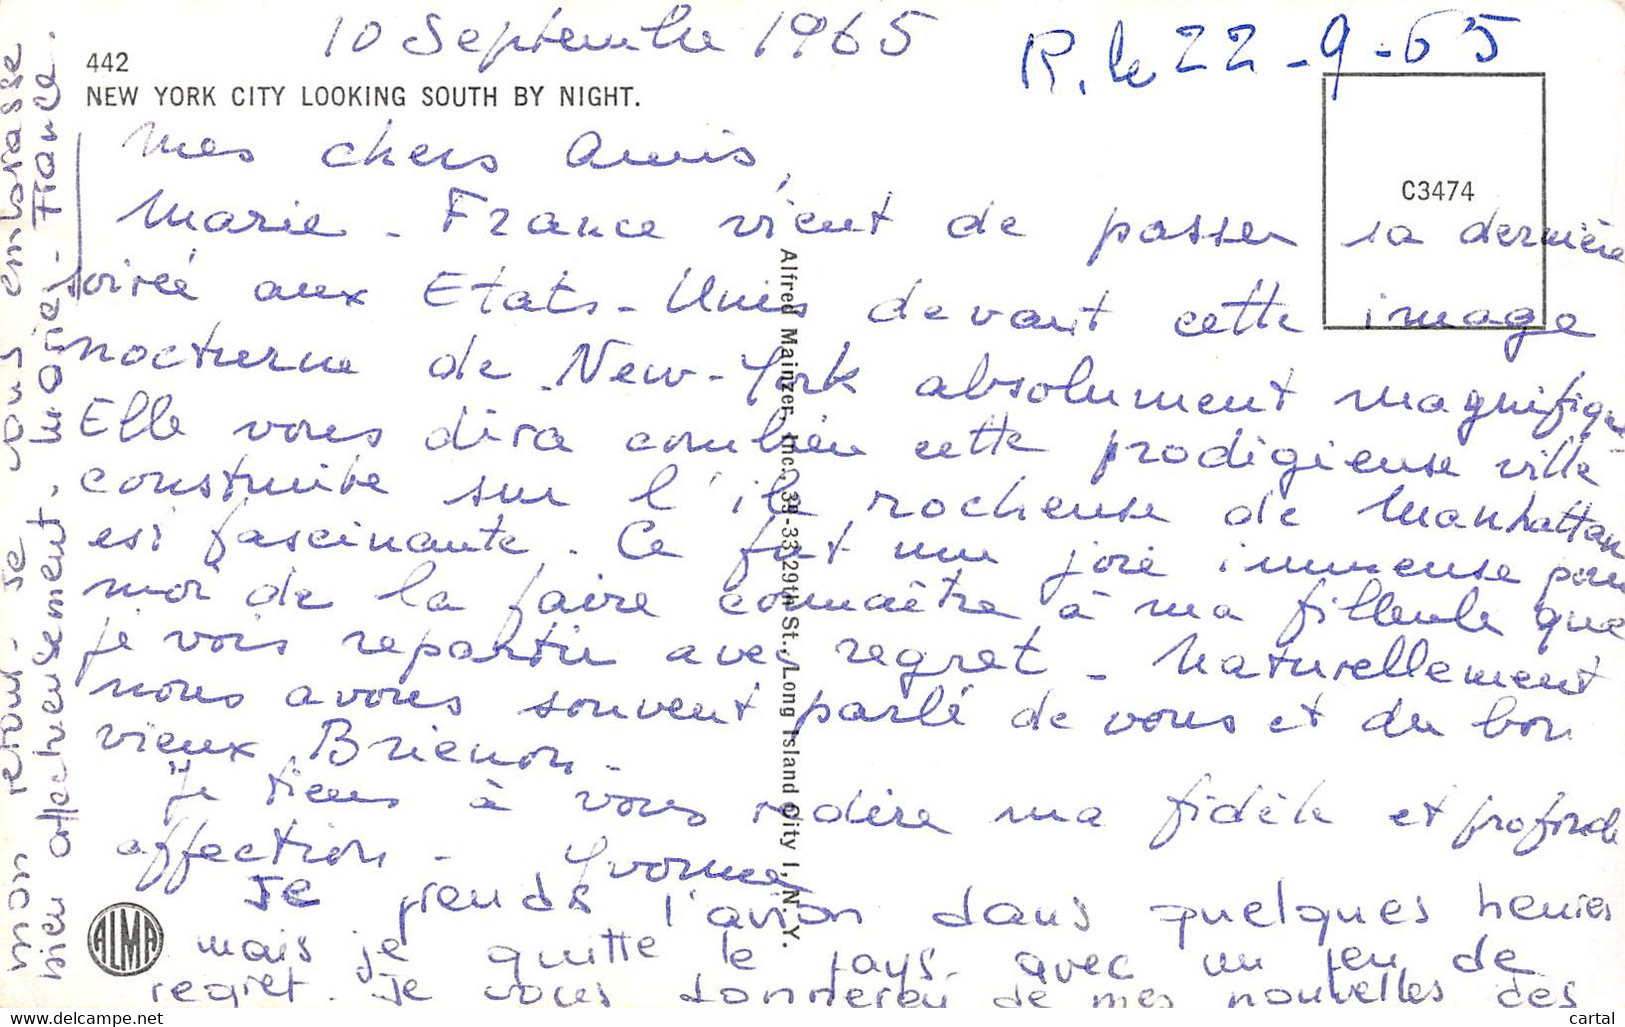 10 Septembre 1965
R. le 22-9-65
442
NEW YORK CITY LOOKING SOUTH BY NIGHT.
C3474
Mes chers Amis,
Marie-France vient de passer sa dernière
soirée aux Etats-Unis devant cette image
nocturne de New-York absolument magnifique
Elle vous dira combien cette prodigieuse ville
construite sur l'île rocheuse de Manhattan
est fascinante. Ce fut une joie immense pour
moi de la faire connaître à ma filleule que
je vois repartir avec regret - Naturellement
nous avons souvent parlé de vous et du bon
vieux Brienon.
Je tiens à vous redire ma fidèle et profonde
affection - Yvonne
Je prends l'avion dans quelques heures
mais je quitte le pays avec un peu de
regret. Je vous donnerai de mes nouvelles dès
mon retour - Je vous embrasse
bien affectueusement, Marie-France.
Alfred Mainzer, Inc., 39-33 29th St., Long Island City 1, N.Y.
ALMA
www.delcampe.net
cartal